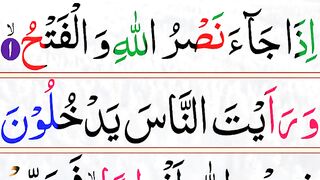 اِذَا جَآءَ نَصْرُ اللّٰهِ وَ الْفَتْحُ ۙ۱
وَ رَاَیْتَ النَّاسَ یَدْخُلُوْنَ